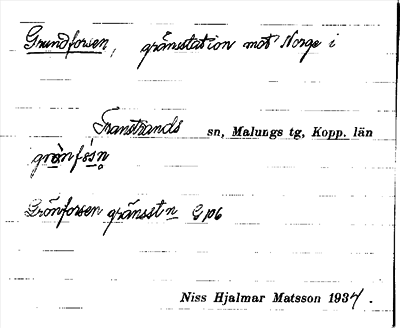 Grundforsen, gränsstation mot Norge i
Transtrands sn, Malungs tg, Kopp. län
Grönforsen gränsst n
Niss Hjalmar Matsson 1934.